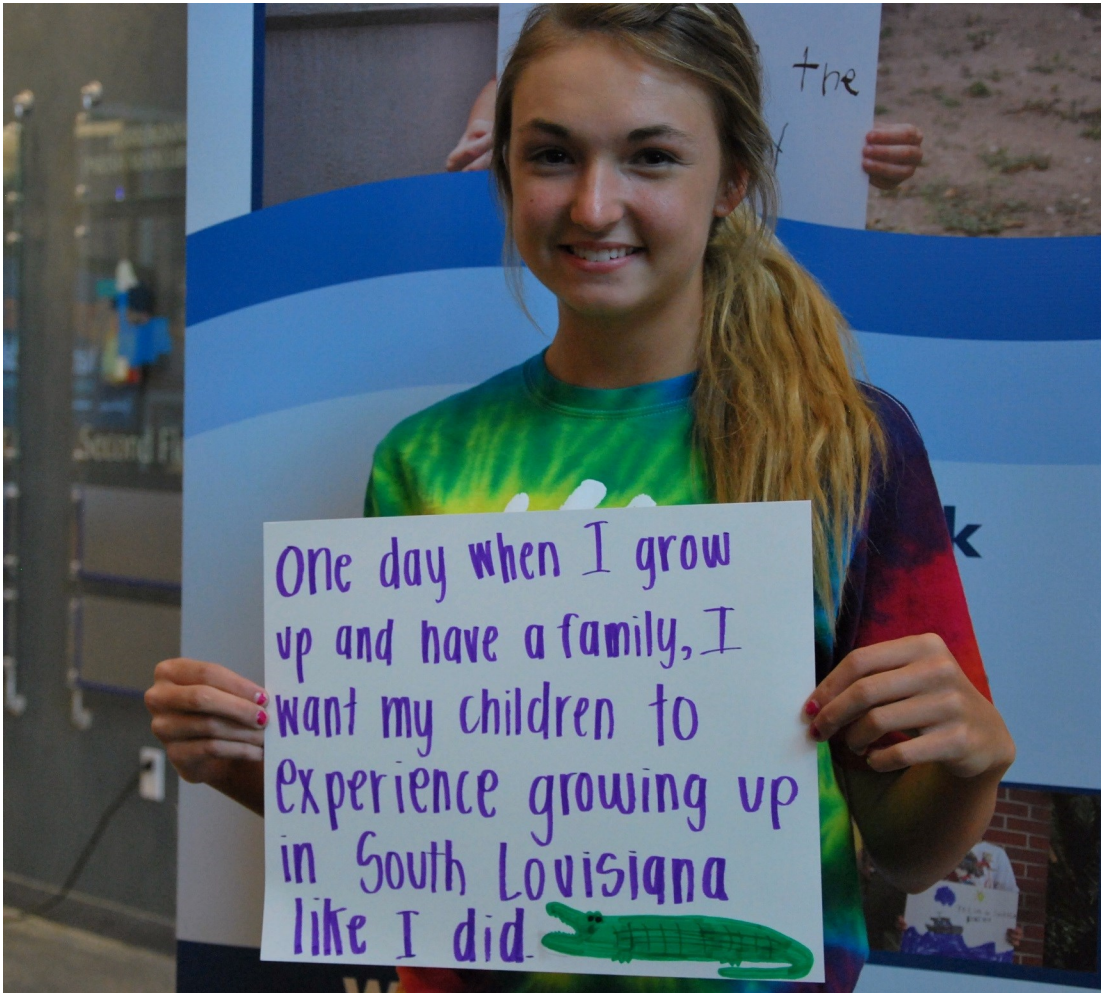 the
Second Fl
k
One day when I grow
up and have a family, I
want my children to
experience growing up
in South Louisiana
like I did.
W